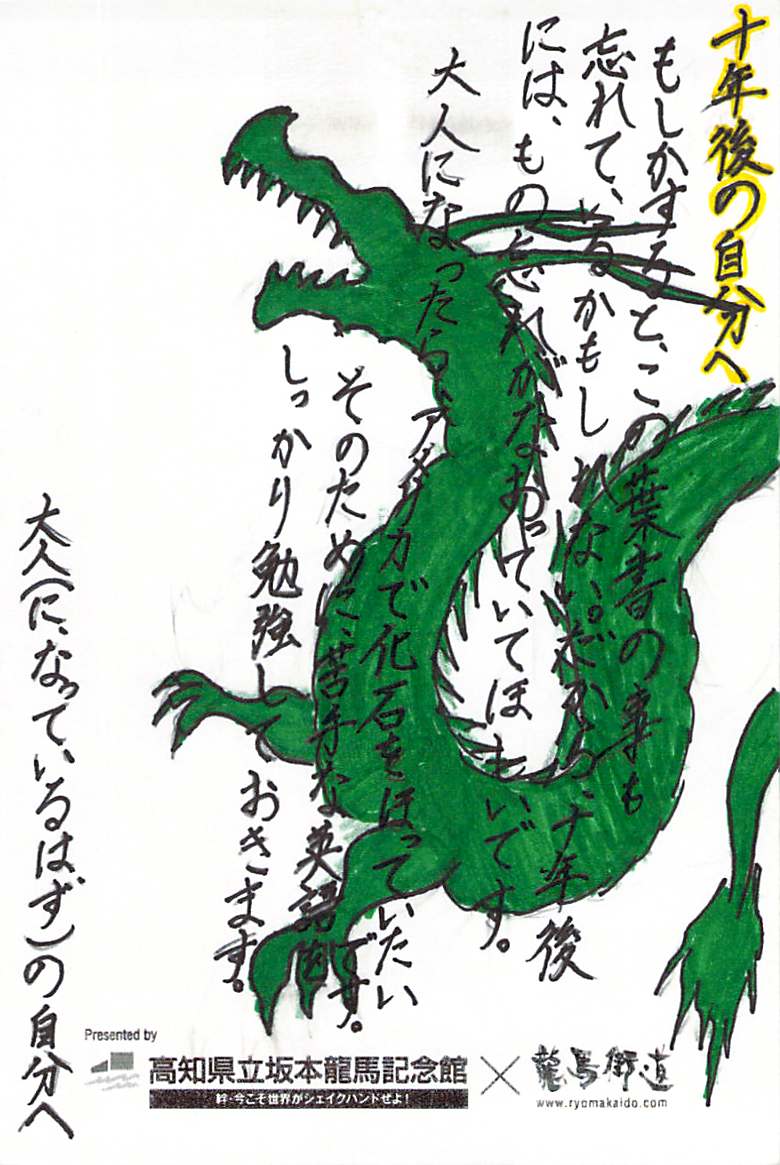 十年後の自分へ
もしかすると、この葉書の事も
忘れて、いるかもしれない。だから、十年後
には、もの忘れがなおっていてほしいです。
大人になったら、アメリカで化石をほっていたい
です。
そのために、苦手な英語も
しっかり勉強しておきます。
大人(に、なっているはず)の自分へ
Presented by
高知県立坂本龍馬記念館
絆・今こそ世界がシェイクハンドせよ!
×
龍馬街道
www.ryomakaido.com